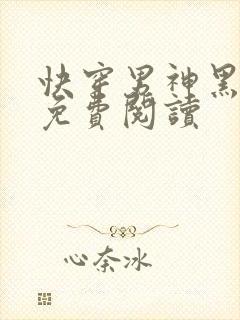 快穿男神黑
免費閱讀
心奈冰